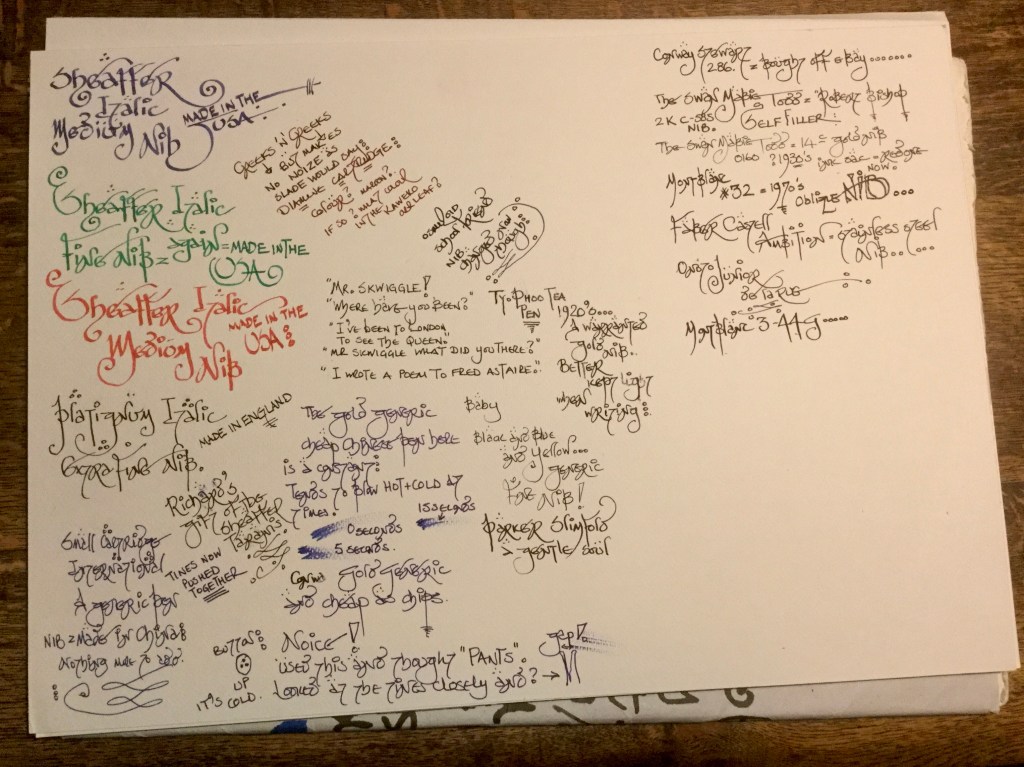 Sheaffer
Italic
Medium Nib
MADE IN THE
USA.
Sheaffer Italic
Fine Nib = again = MADE IN THE
USA
Sheaffer Italic
MADE IN THE
USA:
Medium Nib
Platignum Italic
MADE IN ENGLAND
Extra Fine Nib.
Richard's
gift of the
Sheaffer
TINES NOW
PUSHED
TOGETHER
Small Cartridge
International
A generic pen
NIB = Made in China:
Nothing more to add.
GREEKS 'N' GEEKS
& BUT MAKES
NO NOIZE AS
SLADE WOULD SAY!
DIAMINE CARTRIDGE:
= COLOUR? = MAROON?
IF SO: WHAT COLOUR
IN THE KAWECO
OSMIROID
NIB
"MR. SKWIGGLE!
"WHERE HAVE YOU BEEN?"
"I'VE BEEN TO LONDON
TO SEE THE QUEEN."
"MR SKWIGGLE WHAT DID YOU THERE?"
"I WROTE A POEM TO FRED ASTAIRE."
TY-PHOO TEA
PEN
1920's...
A warranted
gold nib.
BETTER
kept light
when
writing:
The gold generic
cheap Chinese pen here
is a constant:
Tends to BLOW HOT + COLD at
times.
0 SECONDS
15 SECONDS
5 SECONDS.
Gold Generic
and cheap as chips.
Baby
Black and Blue
and Yellow...
generic
Fine
Nib!
PARKER Slimfold
a gentle soul
BUTTON:
UP
IT'S COLD.
Noice!
USED this and thought "PANTS".
Looked at the tines closely and? →
gap!
Conway Stewart
286. = Bought off eBay........
The Swan Mabie Todd = Robert Bishop
2K C-585
NIB.
SELF FILLER:
The Swan Mabie Todd = 14c gold nib
0160 ? 1930's
Montblanc
#32 = 1970's
Oblique NIB NOW....
Faber Castell
Ambition = Stainless steel
Nib.....
Onoto Junior
De la Rue
Montblanc 3-44g.....